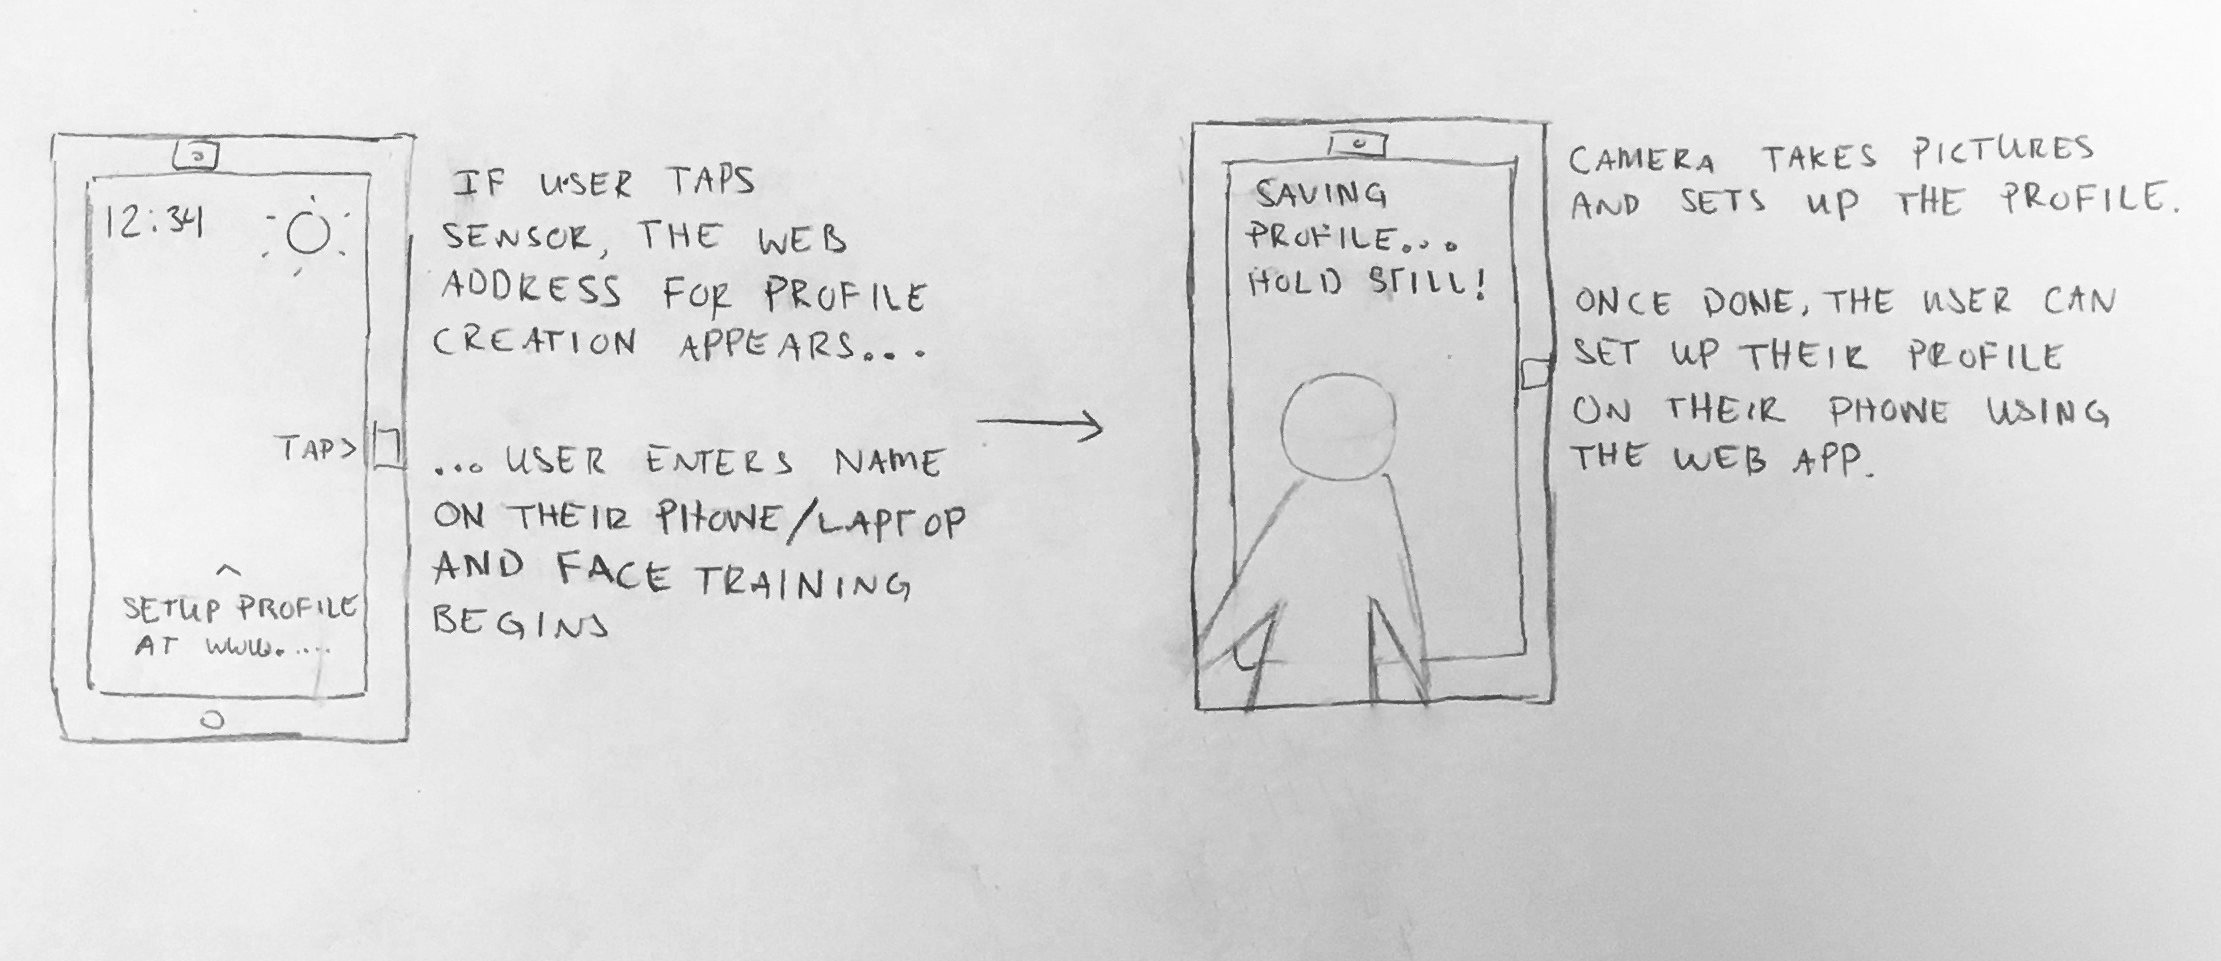 12:34
TAP>
^
SETUP PROFILE
AT WWW.....
IF USER TAPS
SENSOR, THE WEB
ADDRESS FOR PROFILE
CREATION APPEARS...
...USER ENTERS NAME
ON THEIR PHONE/LAPTOP
AND FACE TRAINING
BEGINS
SAVING
PROFILE...
HOLD STILL!
CAMERA TAKES PICTURES
AND SETS UP THE PROFILE.
ONCE DONE, THE USER CAN
SET UP THEIR PROFILE
ON THEIR PHONE USING
THE WEB APP.